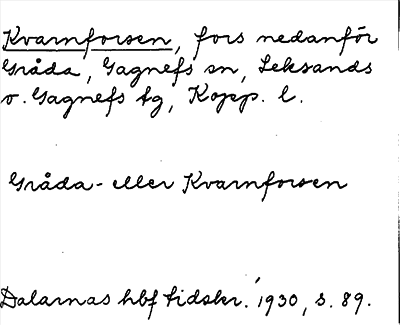 Kvarnforsen, fors nedanför
Gråda, Gagnefs sn, Leksands
o. Gagnefs tg, Kopp. l.
Gråda- eller Kvarnforsen
Dalarnas hbf tidskr. 1930, s. 89.